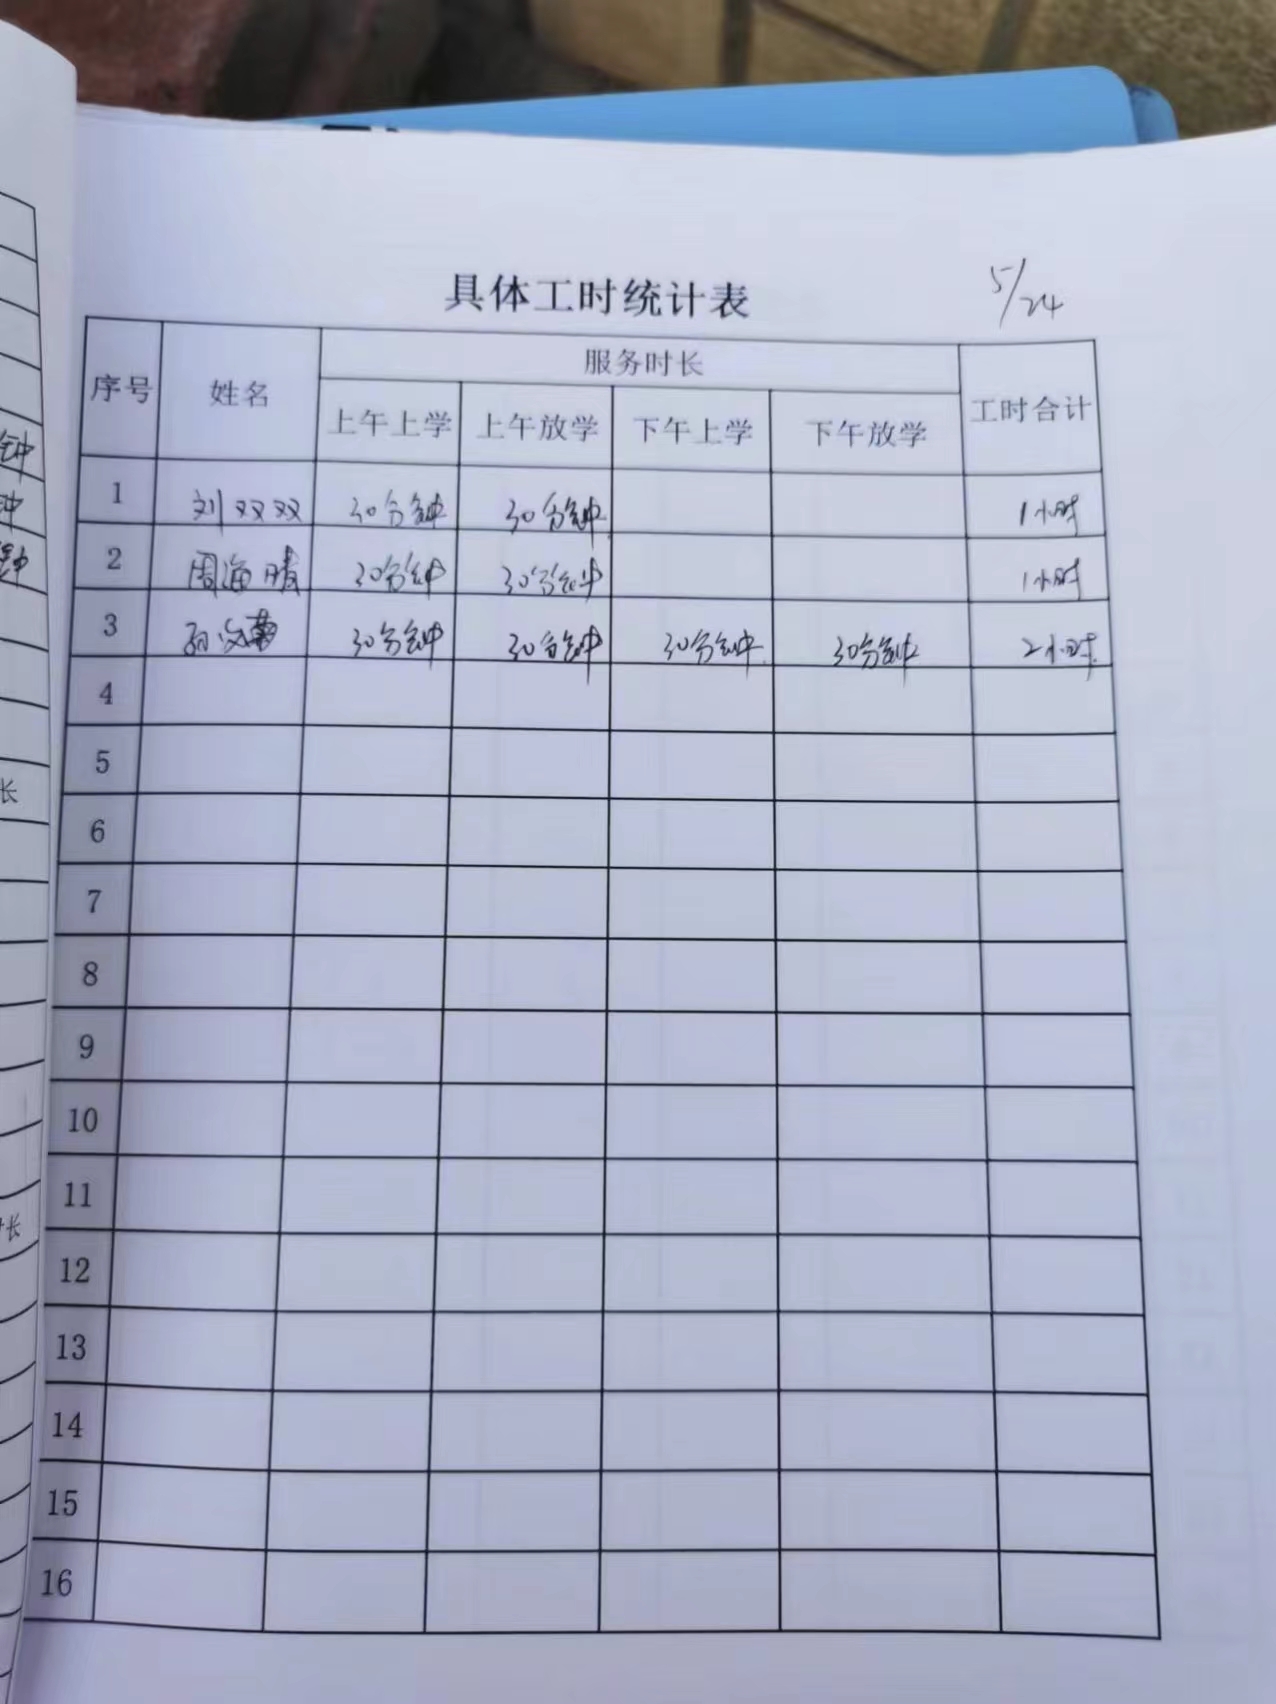 具体工时统计表 5/24
序号 姓名 服务时长 工时合计
上午上学 上午放学 下午上学 下午放学
1 刘双双 30分钟 30分钟 1小时
2 周海晴 30分钟 30分钟 1小时
3 孙文 30分钟 30分钟 30分钟 30分钟 2小时
4
5
6
7
8
9
10
11
12
13
14
15
16
钟
钟
钟
长
长